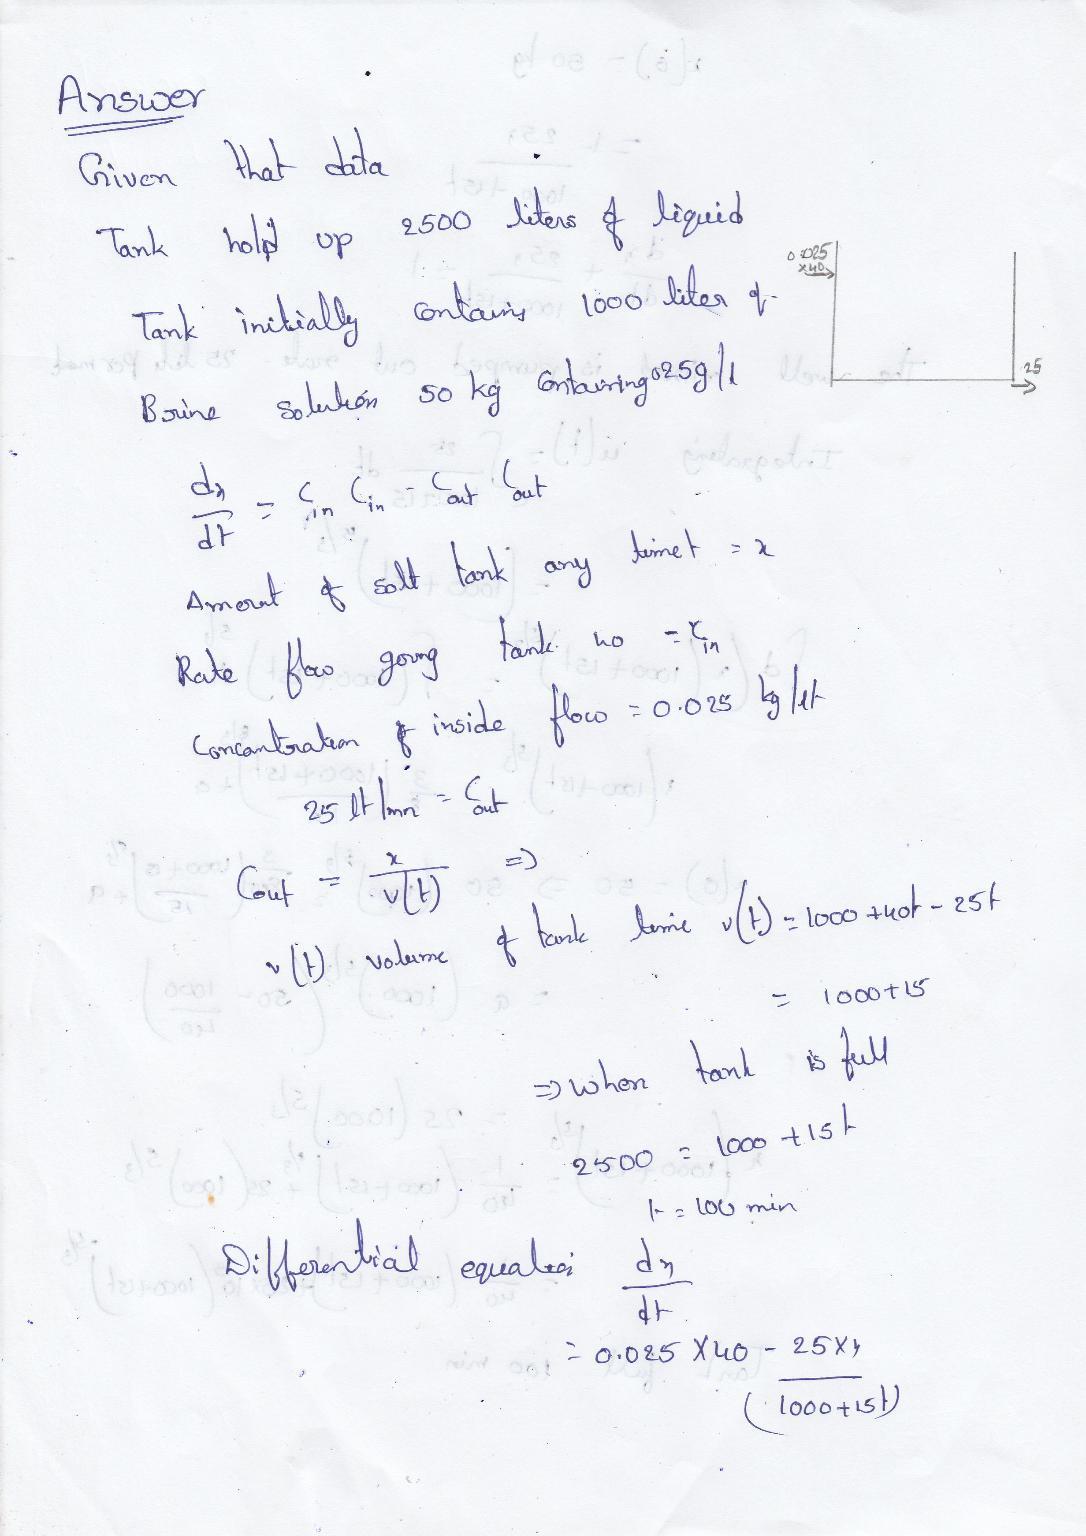 Answer
Given that data
Tank hold up 2500 liters of liquid
Tank initially contains 1000 liter of
Brine solution 50 kg containing 025g/l
0.025
×40
25
dx/dt = r_in C_in - r_out C_out
Amount of salt tank any time t = x
Rate flow going tank no = r_in
Concantration of inside flow = 0.025 kg/lt
25 lt/mn = r_out
Cout = x/v(t) =>
v(t) volume of tank time v(t) = 1000 + 40t - 25t
= 1000 + 15
=> When tank is full
2500 = 1000 + 15t
t = 100 min
Differential equation dx/dt
= 0.025 × 40 - 25 × x/(1000 + 15t)